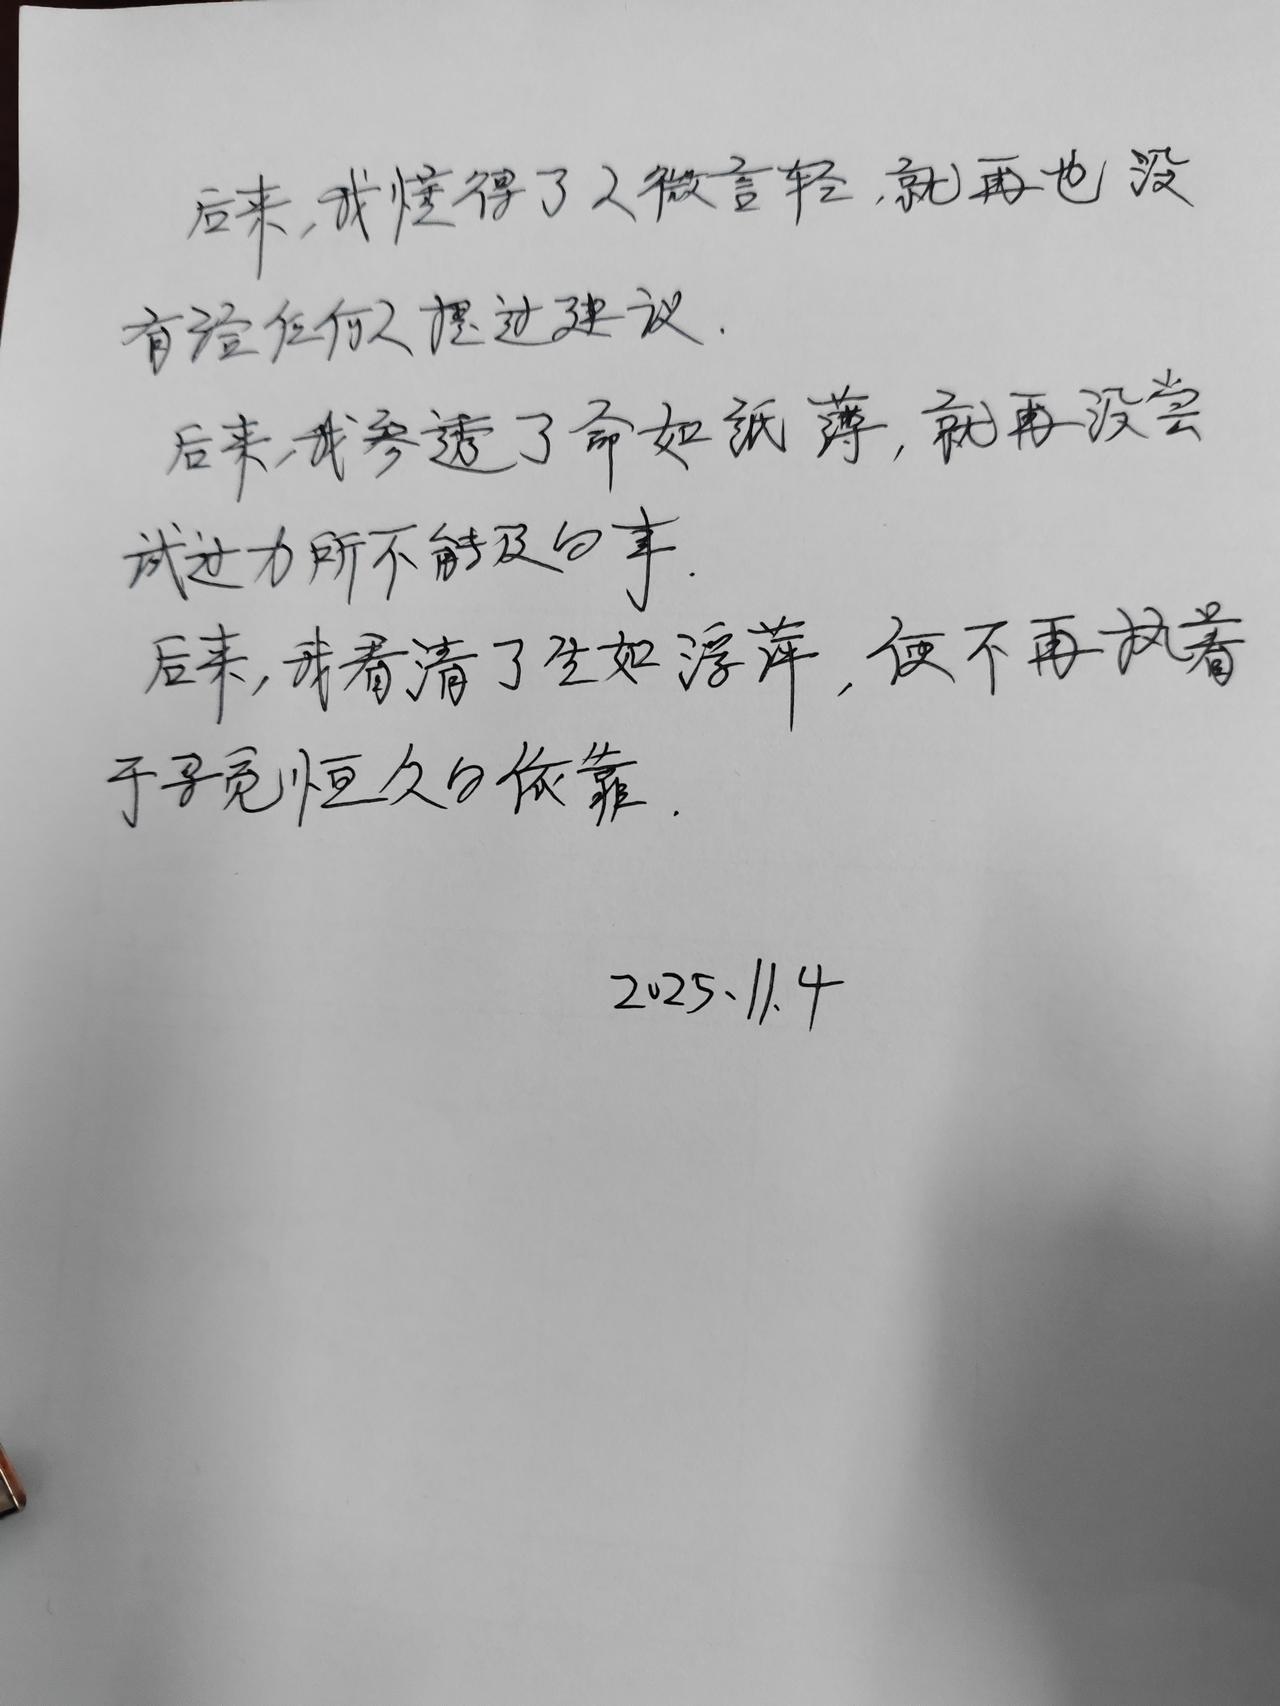 后来,我懂得了人微言轻,就再也没
有给任何人提过建议.
后来,我参透了命如纸薄,就再没尝
试过力所不能及的事.
后来,我看清了生如浮萍,便不再执着
于寻觅恒久的依靠.
2025.11.4